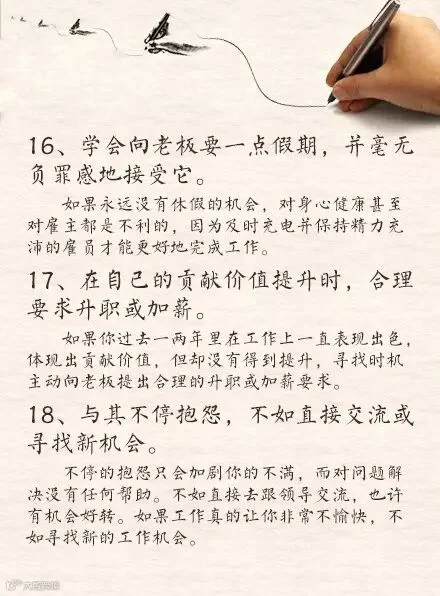 16、学会向老板要一点假期，并毫无
负罪感地接受它。
如果永远没有休假的机会，对身心健康甚至
对雇主都是不利的，因为及时充电并保持精力充
沛的雇员才能更好地完成工作。
17、在自己的贡献价值提升时，合理
要求升职或加薪。
如果你过去一两年里在工作上一直表现出色，
体现出贡献价值，但却没有得到提升，寻找时机
主动向老板提出合理的升职或加薪要求。
18、与其不停抱怨，不如直接交流或
寻找新机会。
不停的抱怨只会加剧你的不满，而对问题解
决没有任何帮助。不如直接去跟领导交流，也许
有机会好转。如果工作真的让你非常不愉快，不
如寻找新的工作机会。